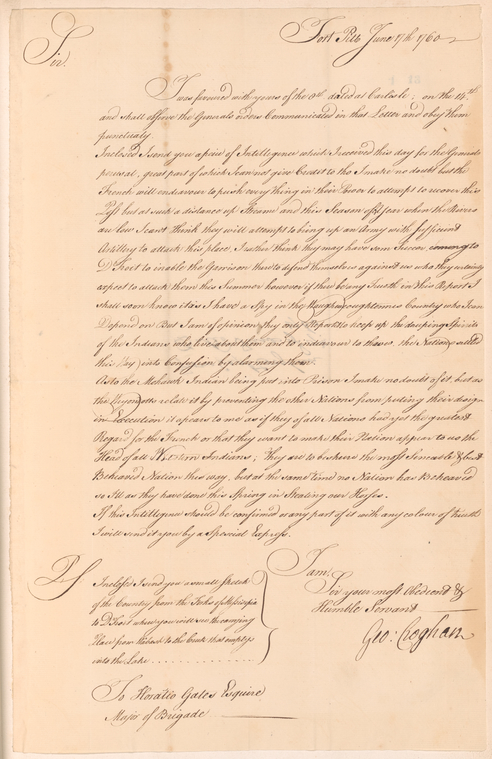 Fort Pitt June 17th 1760
Sir.
I was favoured with yours of the 8th dated at Carlisle; on the 14th
and shall observe the Generals orders Communicated in that Letter and obey them
punctualy.
Inclosed I send you a piece of Intelligence which I received this day for the Generals
perusal, great part of which I can not give Credit to tho I make no doubt but the
French will endeavour to push every thing in their Power to attempt to recover this
Post but at such a distance up Stream and this Season of Year when the Rivers
are low I cant think they will attempt to bring up an Army with sufficient
Artillery to attack this place, I rather think they may have some Succor coming to
D'Troit to inable the Garrison there to defend themselves against us who they certainly
expect to attack them this Summer however if there be any Truth in this Report I
shall soon know it as I have a Spy in the Country who I can
Depend on But I am of opinion they only Report to keep up the drooping Spirits
of the Indians who live about them and to endeavour to throw the Nations
this Way into Confusion by alarming them.
As to the Mohawk Indian being put into Prison I make no doubt of it, but as
the relate it by preventing the other Nations from puting their design
in Execution it apears to me as if they of all Nations had yet the greatest
Regard for the French or that they want to make their Nation appear to us the
Head of all Western Indians; They are to be sure the most Senceable & best
Behaved Nation this way, but at the same time no Nation has Behaved
so Ill as they have done this Spring in Stealing our Horses.
If this Intelligence should be confirmed or any part of it with any colour of truth
I will send it you by a Special Express.
I am,
Sir your most Obedient &
Humble Servant
Geo: Croghan
PS
Inclosed I send you a small Sketch
of the Country from the Forks of
to D'Troit where you will see the carrying
Place from to the Creek that emptys
into the Lake . . . . . . . . . . . . .
To Horatio Gates Esquire
Major of Brigade